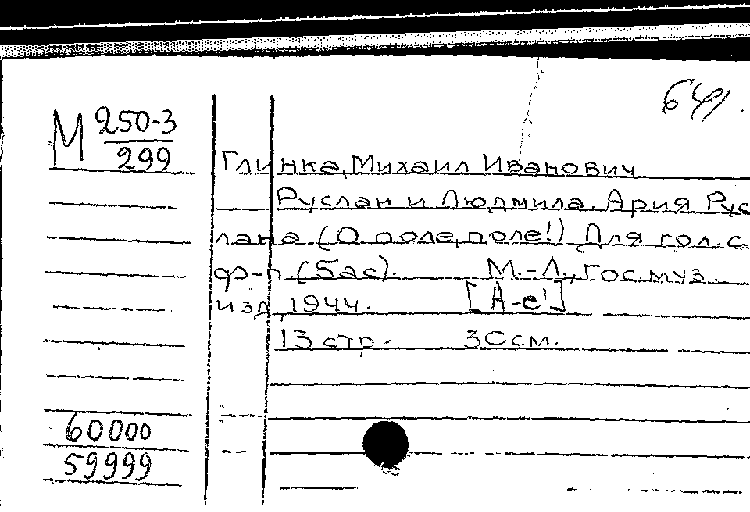 641.
М 250-3
299
Глинка, Михаил Иванович
Руслан и Людмила. Ария Рус
лана (О поле, поле!) Для гол. с
ф-п (бас). М.-Л., Гос. муз.
изд, 1944. [A-e']
13 стр. 30 см.
60000
59999